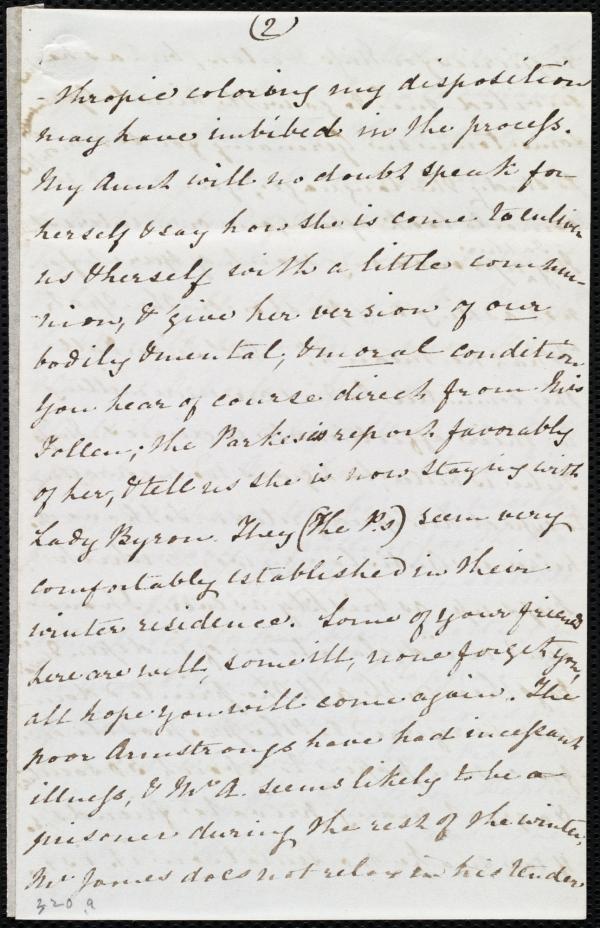 (2)
-thropic coloring my disposition
may have imbibed in the process.
My Aunt will no doubt speak for
herself & say how she is come to enliven
us & herself with a little commu-
nion, & give her version of our
bodily & mental, & moral condition
You hear of course direct from Miss
Follen; the Parkes's report favorably
of her, & tell us she is now staying with
Lady Byron. They (the P.s) seem very
comfortably established in their
winter residence. Some of your friends
here are well, some ill, none forget you,
all hope you will come again. The
poor Armstrongs have had incessant
illness, & Mr A. seems likely to be a
prisoner during the rest of the winter,
Mr James does not relax in his tender
320